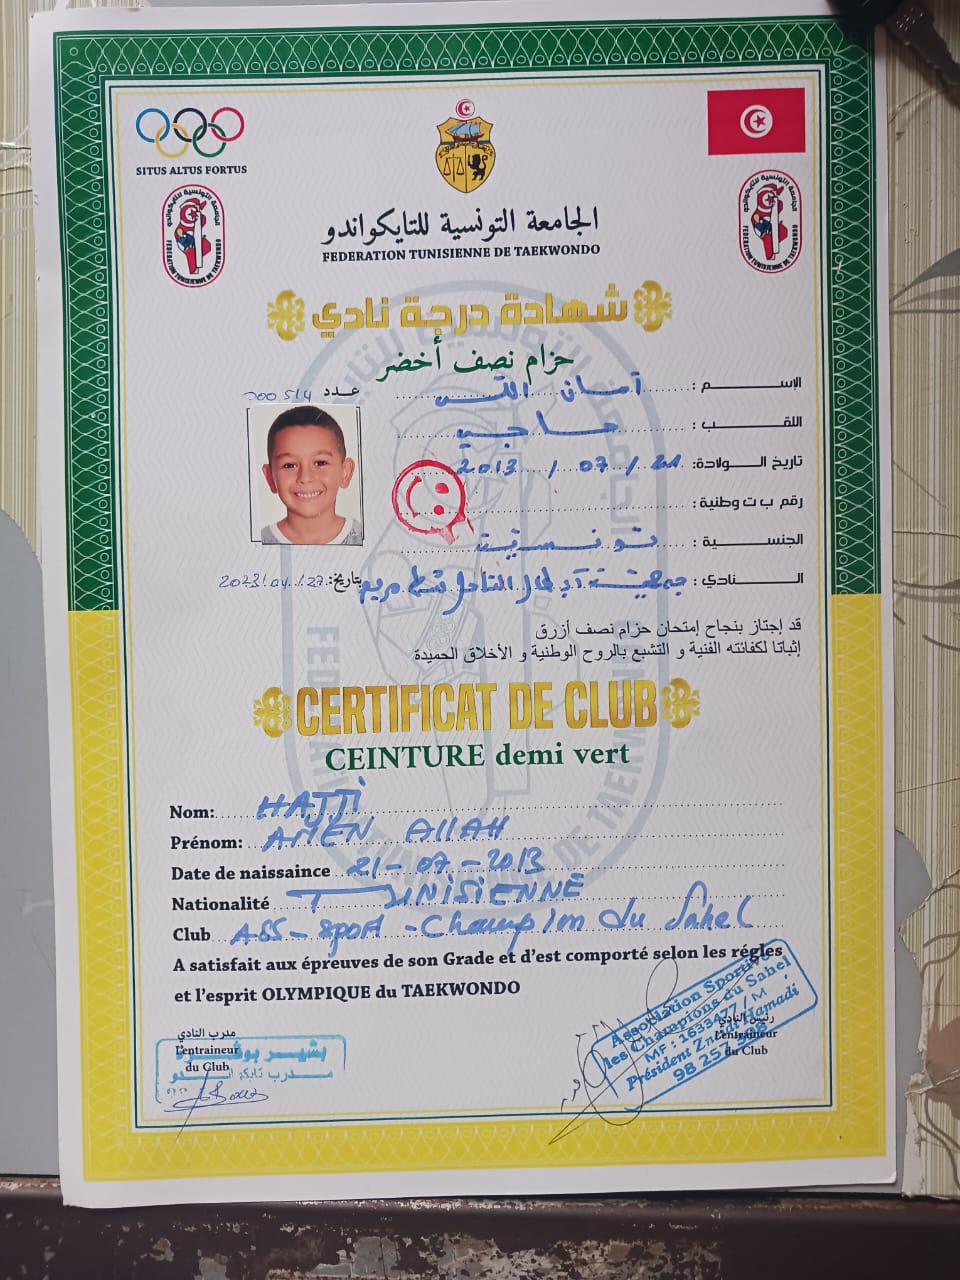 SITUS ALTUS FORTUS
الجامعة التونسية للتايكواندو
FEDERATION TUNISIENNE DE TAEKWONDO
شهادة درجة نادي
حزام نصف أخضر
عدد 000514
الإسم :
اللقب : حاجي
تاريخ الولادة: 21 / 07 / 2013
رقم ب ت وطنية :
الجنسية : تونسية
النادي: جمعية أبطال الساحل شط مريم بتاريخ: 27/04/2023
قد إجتاز بنجاح إمتحان حزام نصف أزرق
إثباتا لكفائته الفنية و التشبع بالروح الوطنية و الأخلاق الحميدة
CERTIFICAT DE CLUB
CEINTURE demi vert
Nom: HAJJI
Prénom: AMEN ALLAH
Date de naissaince 21-07-2013
Nationalité TUNISIENNE
Club ASS-Sport-Champion du Sahel
A satisfait aux épreuves de son Grade et d'est comporté selon les régles
et l'esprit OLYMPIQUE du TAEKWONDO
مدرب النادي
L'entraineur
du Club
رئيس النادي
L'entraineur
du Club
Association Sportive
les Champions du Sahel
MF : 1633477 / M
Président Znaidi Hamadi